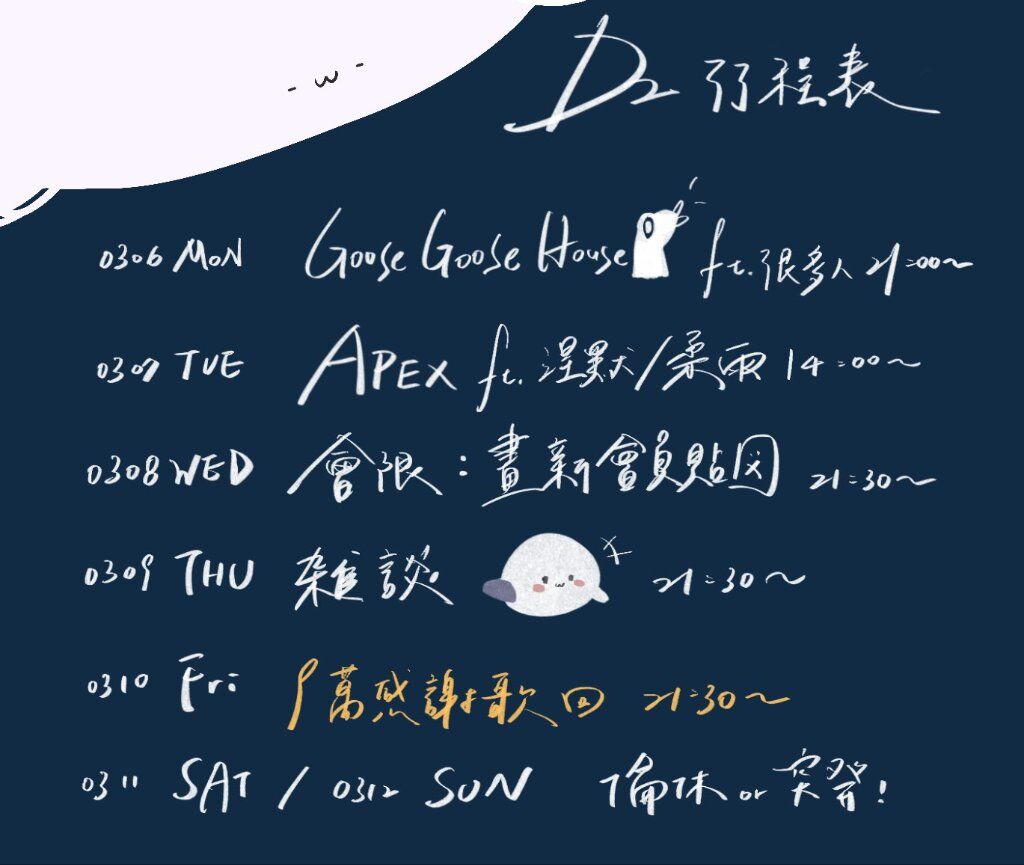 -w-
D2 行程表
0306 MON Goose Goose House ft. 很多人 21:00~
0307 TUE APEX ft. 涅默/柔雨 14:00~
0308 WED 會限:畫新會員貼図 21:30~
0309 THU 雑談 21:30~
0310 Fri 9萬感謝歌回 21:30~
0311 SAT / 0312 SUN 偷休 or 突發!